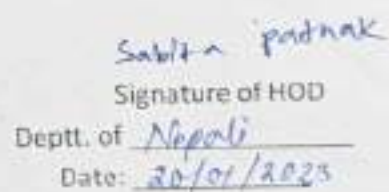 Sabita patnak
Signature of HOD
Deptt. of Nepali
Date: 20/01/2023